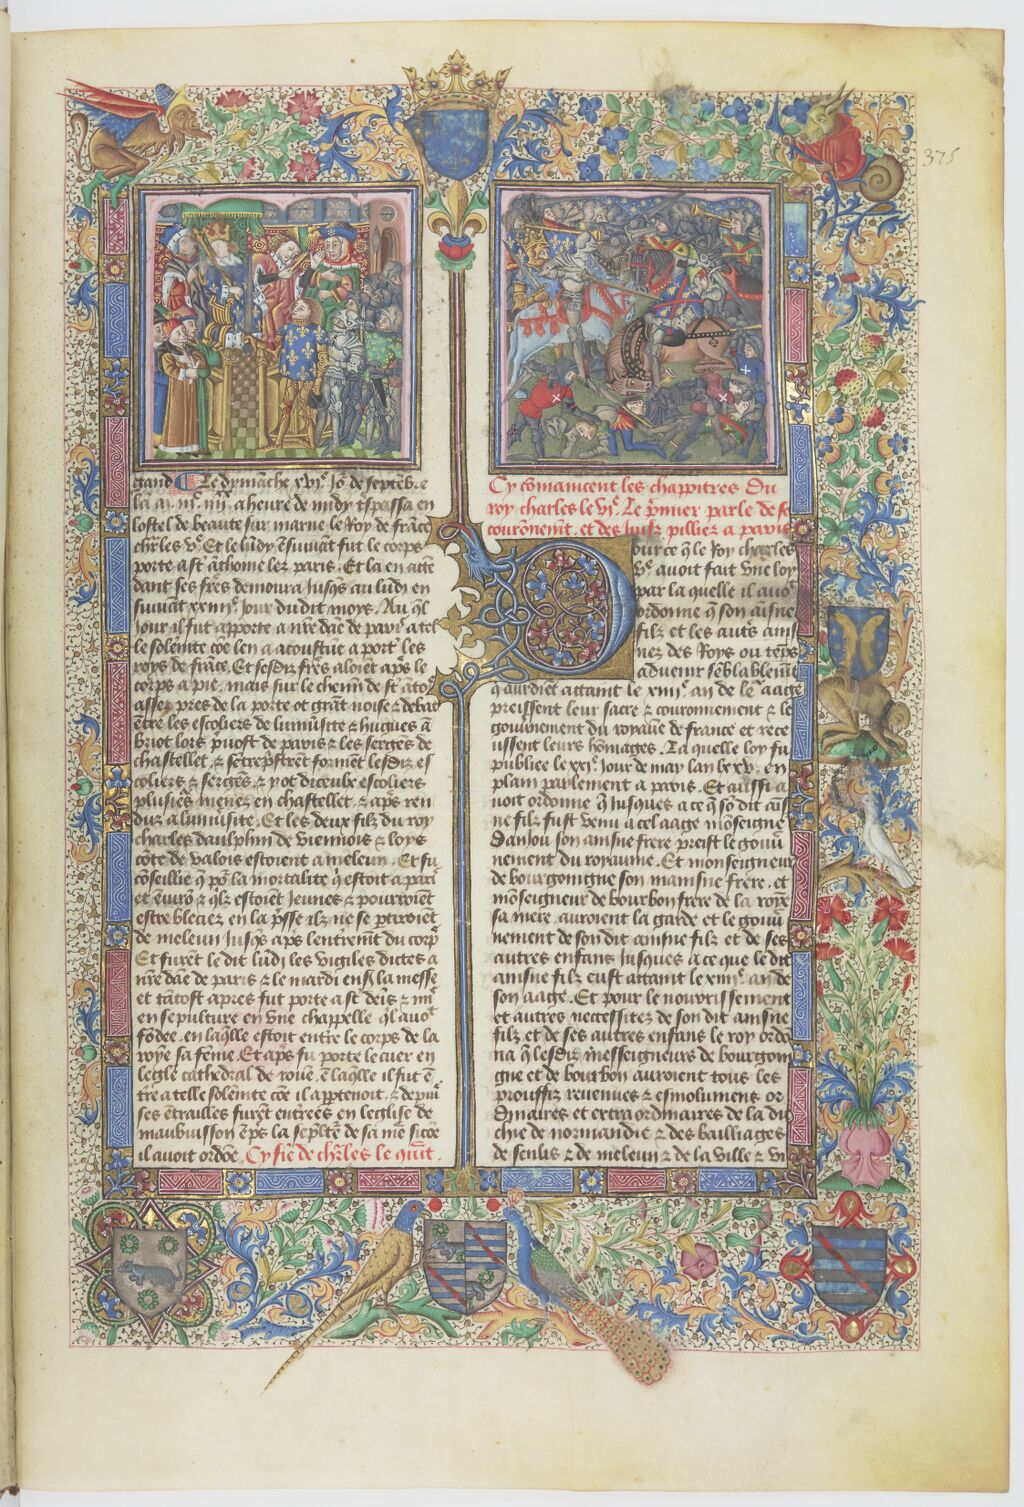 375
gand Le dymāche xvjᵉ Joʳ de septēbre
la .m. iijᶜ iiijˣˣ a heure de midy tˢpassa en
lostel de beaute sur marne le Roy de frāce
chr̄les vᵉ. Et le lūdy ēsuivāt fut le corps
porte a sͭ āthoine lez paris. Et la en atte
dant ses frēs demoura Jusqs au lūdi en
suivāt xxiiijᵉ Jour du dit moys. Au ql
Jour il fut apporte a nr̄e dāe de paris a tel
le solēnite cōe len a acoustūe a port̄ les
roys de frāce. Et sesdiz frēs aloiēt ap̄s le
corps a pie. mais sur le chemin de sͭ āto
assez pres de la porte ot grāt noise & debat
ētre les escoliers de luniūsite & hugues a
briot lors p̄uost de paris & les serges de
chastellet. & sētrep̄stirēt formēt lesdiz es
coliers & sergēs. & y ot diceulx escoliers
plusiēs menez en chastellet & ap̄s ren
duz a luniūsite. Et les deux filz du roy
charles daulphin de viennois & loys
cōte de valois estoient a meleun. Et fu
cōseillie q̄ po͛ la mortalite q̄ estoit a paris
et ēuirō & qlz estoiēt Jeunes & pourroiēt
estre bleciez en la p̄sse ilz ne se ptiroiēt
de meleun Jusqs ap̄s lent̄remt du corps
Et furēt le dit lūdi les vigiles dictes a
nr̄e dāe de paris & le mardi ensͥ la messe
et tātost apres fut porte a sͭ deīs & mis
en sepulture en vne chappelle ql auoit
fōdee. en laqlle estoit entre le corps de la
royē sa fēme. Et ap̄s fu porte le cuer en
legle cathedral de rouē. ē laqlle il fut ē
tre a telle solēnite cōe il app̄tenoit. & depuis
ses ētrailles furēt entrees en leglise de
maubuisson ēp̄s la sep̄lt̄e de sa mēe sicōe
il auoit ordōe. Cy fīe de chr̄les le quīt.
Cy cōmancent les chappitres du
roy charles le vjᵉ. Le p̄mier parle de sō
courōnemt. et des Juifz pilliez a paris
Pource q̄ le Roy charles
vᵉ auoit fait vne loy
par la quelle il auoͭ
ordonne q̄ son aisne
filz et les aut̄s ains
nez des Roys ou tēps
aduenir sēblablemt
q̄ auroiēt attaint le xiiijᵉ an de le͛ aage
preissent leur sacre & couronnement & le
gouūnement du royaūe de france et rece
ussent leurs hōmages. La quelle loy fu
publiee le xxjᵉ Jour de may lan lxxv. en
plain parlement a paris. Et aussi a
uoit ordonne q̄ Jusques a ce q̄ sō dit aīs
ne filz fust venu a cel aage mōseigne͛
Danjou son ainsne frere preist le gouū
nement du royaume. Et monseigneur
de bourgoingne son mainsne frere. et
mōseigneur de bourbon frere de la royē
sa mere. auroient la garde et le gouū
nement de son dit ainsne filz et de ses
autres enfans Jusques a ce que le dit
ainsne filz eust attaint le xiiijᵉ an de
son aage. Et pour le nourrissement
et autres necessitez de son dit ainsne
filz et de ses autres enfans le roy ordo
na q̄ lesdiz m̄esseigneurs de bourgoin
gne et de bourbon auroient tous les
prouffiz reuenues & esmolumens or
dinaires et extraordinaires de la du
chie de normandie & des bailliages
de senlis & de meleun & de la ville & vi